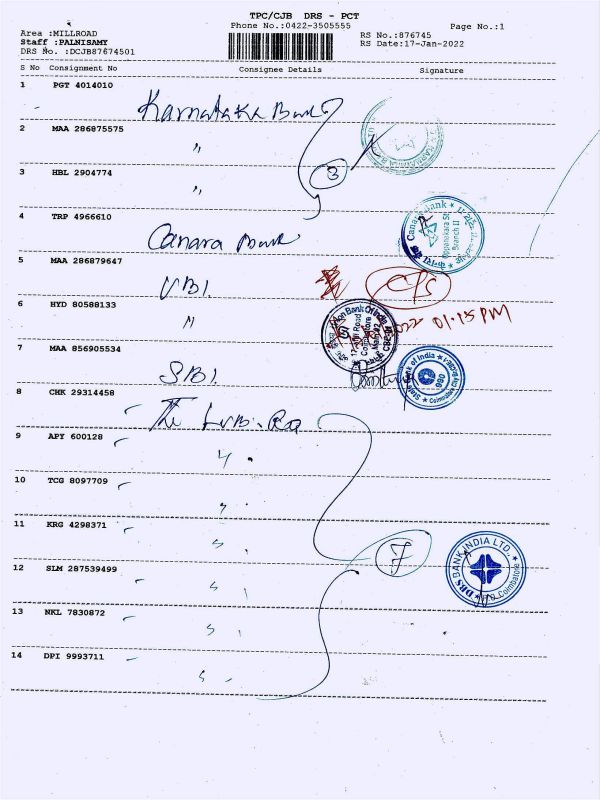 TPC/CJB DRS - PCT
Phone No.:0422-3505555
Page No.:1
Area :MILLROAD
Staff :PALNISAMY
DRS No. :DCJB87674501
RS No.:876745
RS Date:17-Jan-2022
S No Consignment No Consignee Details Signature
1 PGT 4014010
Karnataka Bank
2 MAA 286875575
"
3 HBL 2904774
"
3
4 TRP 4966610
Canara Bank
Canara Bank
Oppanakara St
Branch II
5 MAA 286879647
UBI
CPS
6 HYD 80588133
"
Union Bank Of India
Mill Road
Coimbatore
01:15 PM
7 MAA 856905534
SBI
State Bank of India
Coimbatore City
8 CHK 29314458
The LVB
9 APY 600128
"
10 TCG 8097709
"
11 KRG 4298371
"
7
12 SLM 287539499
"
DBS BANK INDIA LTD.,
Coimbatore
13 NKL 7830872
"
14 DPI 9993711
"